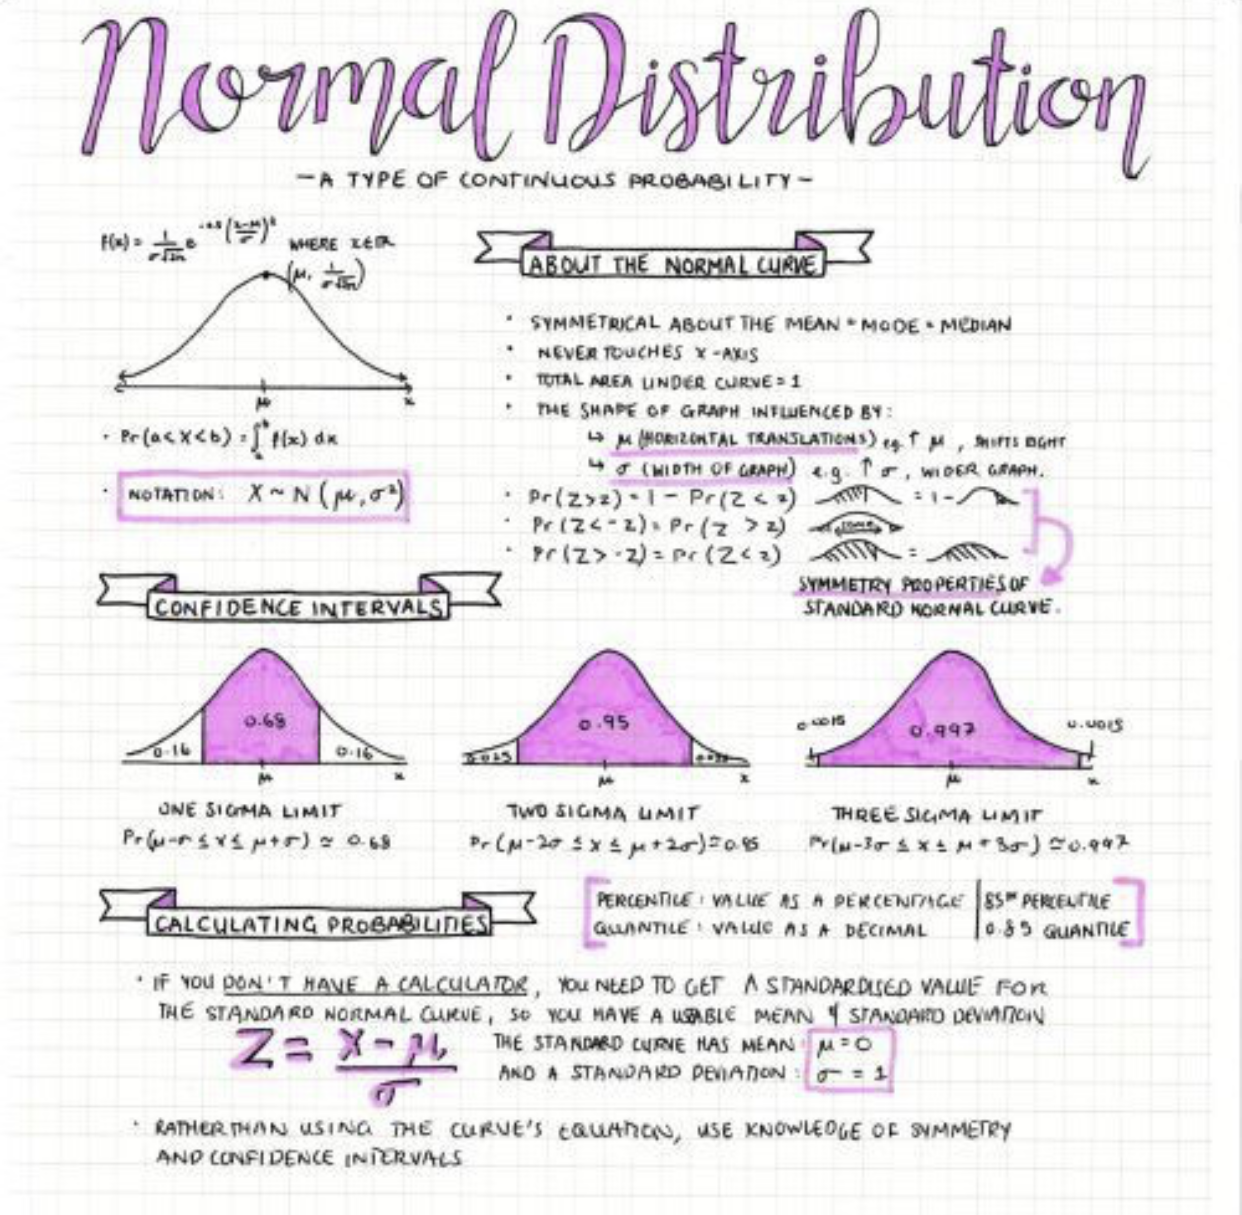 Normal Distribution
- A TYPE OF CONTINUOUS PROBABILITY -
f(x) = 1/σ√2π e^-0.5(x-μ/σ)² WHERE x∈R
(μ, 1/σ√2π)
μ x
· Pr(a<X<b) = ∫ f(x) dx
· NOTATION: X ~ N (μ, σ²)
ABOUT THE NORMAL CURVE
· SYMMETRICAL ABOUT THE MEAN = MODE = MEDIAN
· NEVER TOUCHES X-AXIS
· TOTAL AREA UNDER CURVE = 1
· THE SHAPE OF GRAPH INFLUENCED BY:
↳ μ (HORIZONTAL TRANSLATIONS) eg. ↑ μ, SHIFTS RIGHT
↳ σ (WIDTH OF GRAPH) e.g. ↑ σ, WIDER GRAPH.
· Pr(Z>z) = 1 - Pr(Z<z) = 1 -
· Pr(Z<-z) = Pr(Z>z)
· Pr(Z>-z) = Pr(Z<z) =
SYMMETRY PROPERTIES OF
STANDARD NORMAL CURVE.
CONFIDENCE INTERVALS
0.16 0.68 0.16
μ x
0.95
μ x
0.0015 0.997 0.0015
μ x
ONE SIGMA LIMIT
Pr(μ-σ ≤ X ≤ μ+σ) ≃ 0.68
TWO SIGMA LIMIT
Pr(μ-2σ ≤ X ≤ μ+2σ) ≃ 0.95
THREE SIGMA LIMIT
Pr(μ-3σ ≤ X ≤ μ+3σ) ≃ 0.997
CALCULATING PROBABILITIES
PERCENTILE: VALUE AS A PERCENTAGE | 85TH PERCENTILE
QUANTILE: VALUE AS A DECIMAL | 0.85 QUANTILE
· IF YOU DON'T HAVE A CALCULATOR, YOU NEED TO GET A STANDARDISED VALUE FOR
THE STANDARD NORMAL CURVE, SO YOU HAVE A USABLE MEAN & STANDARD DEVIATION
Z = X - μ / σ
THE STANDARD CURVE HAS MEAN: μ = 0
AND A STANDARD DEVIATION: σ = 1
· RATHER THAN USING THE CURVE'S EQUATION, USE KNOWLEDGE OF SYMMETRY
AND CONFIDENCE INTERVALS